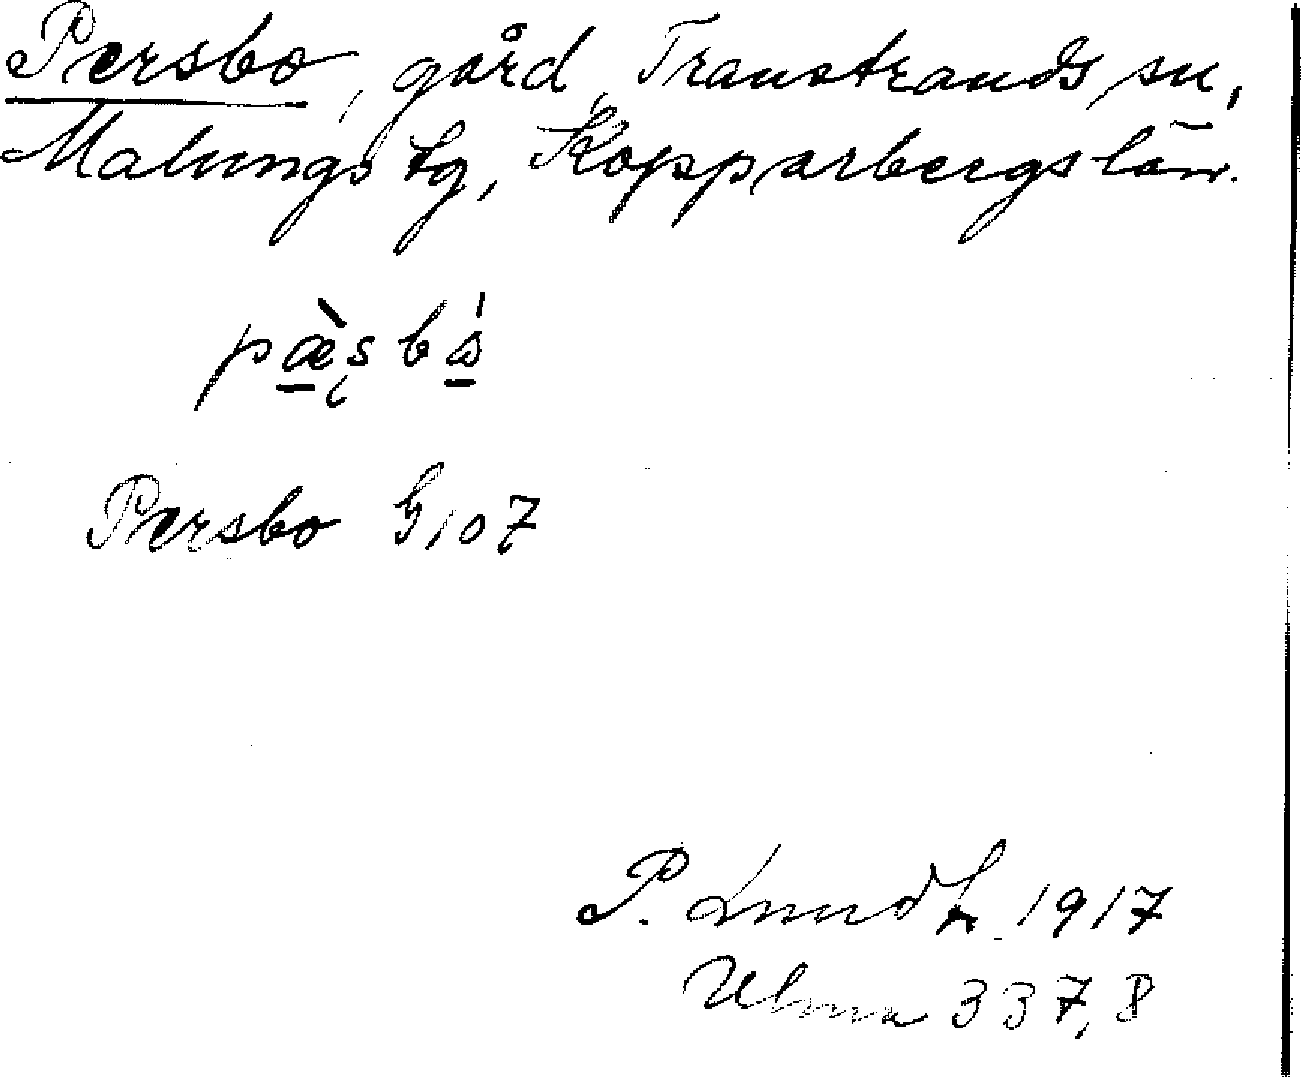 Persbo, gård, Transtrands sn,
Malungs tg, Kopparbergs län.
Persbo G 107
P. Lundh 1917
Ulma 337,8